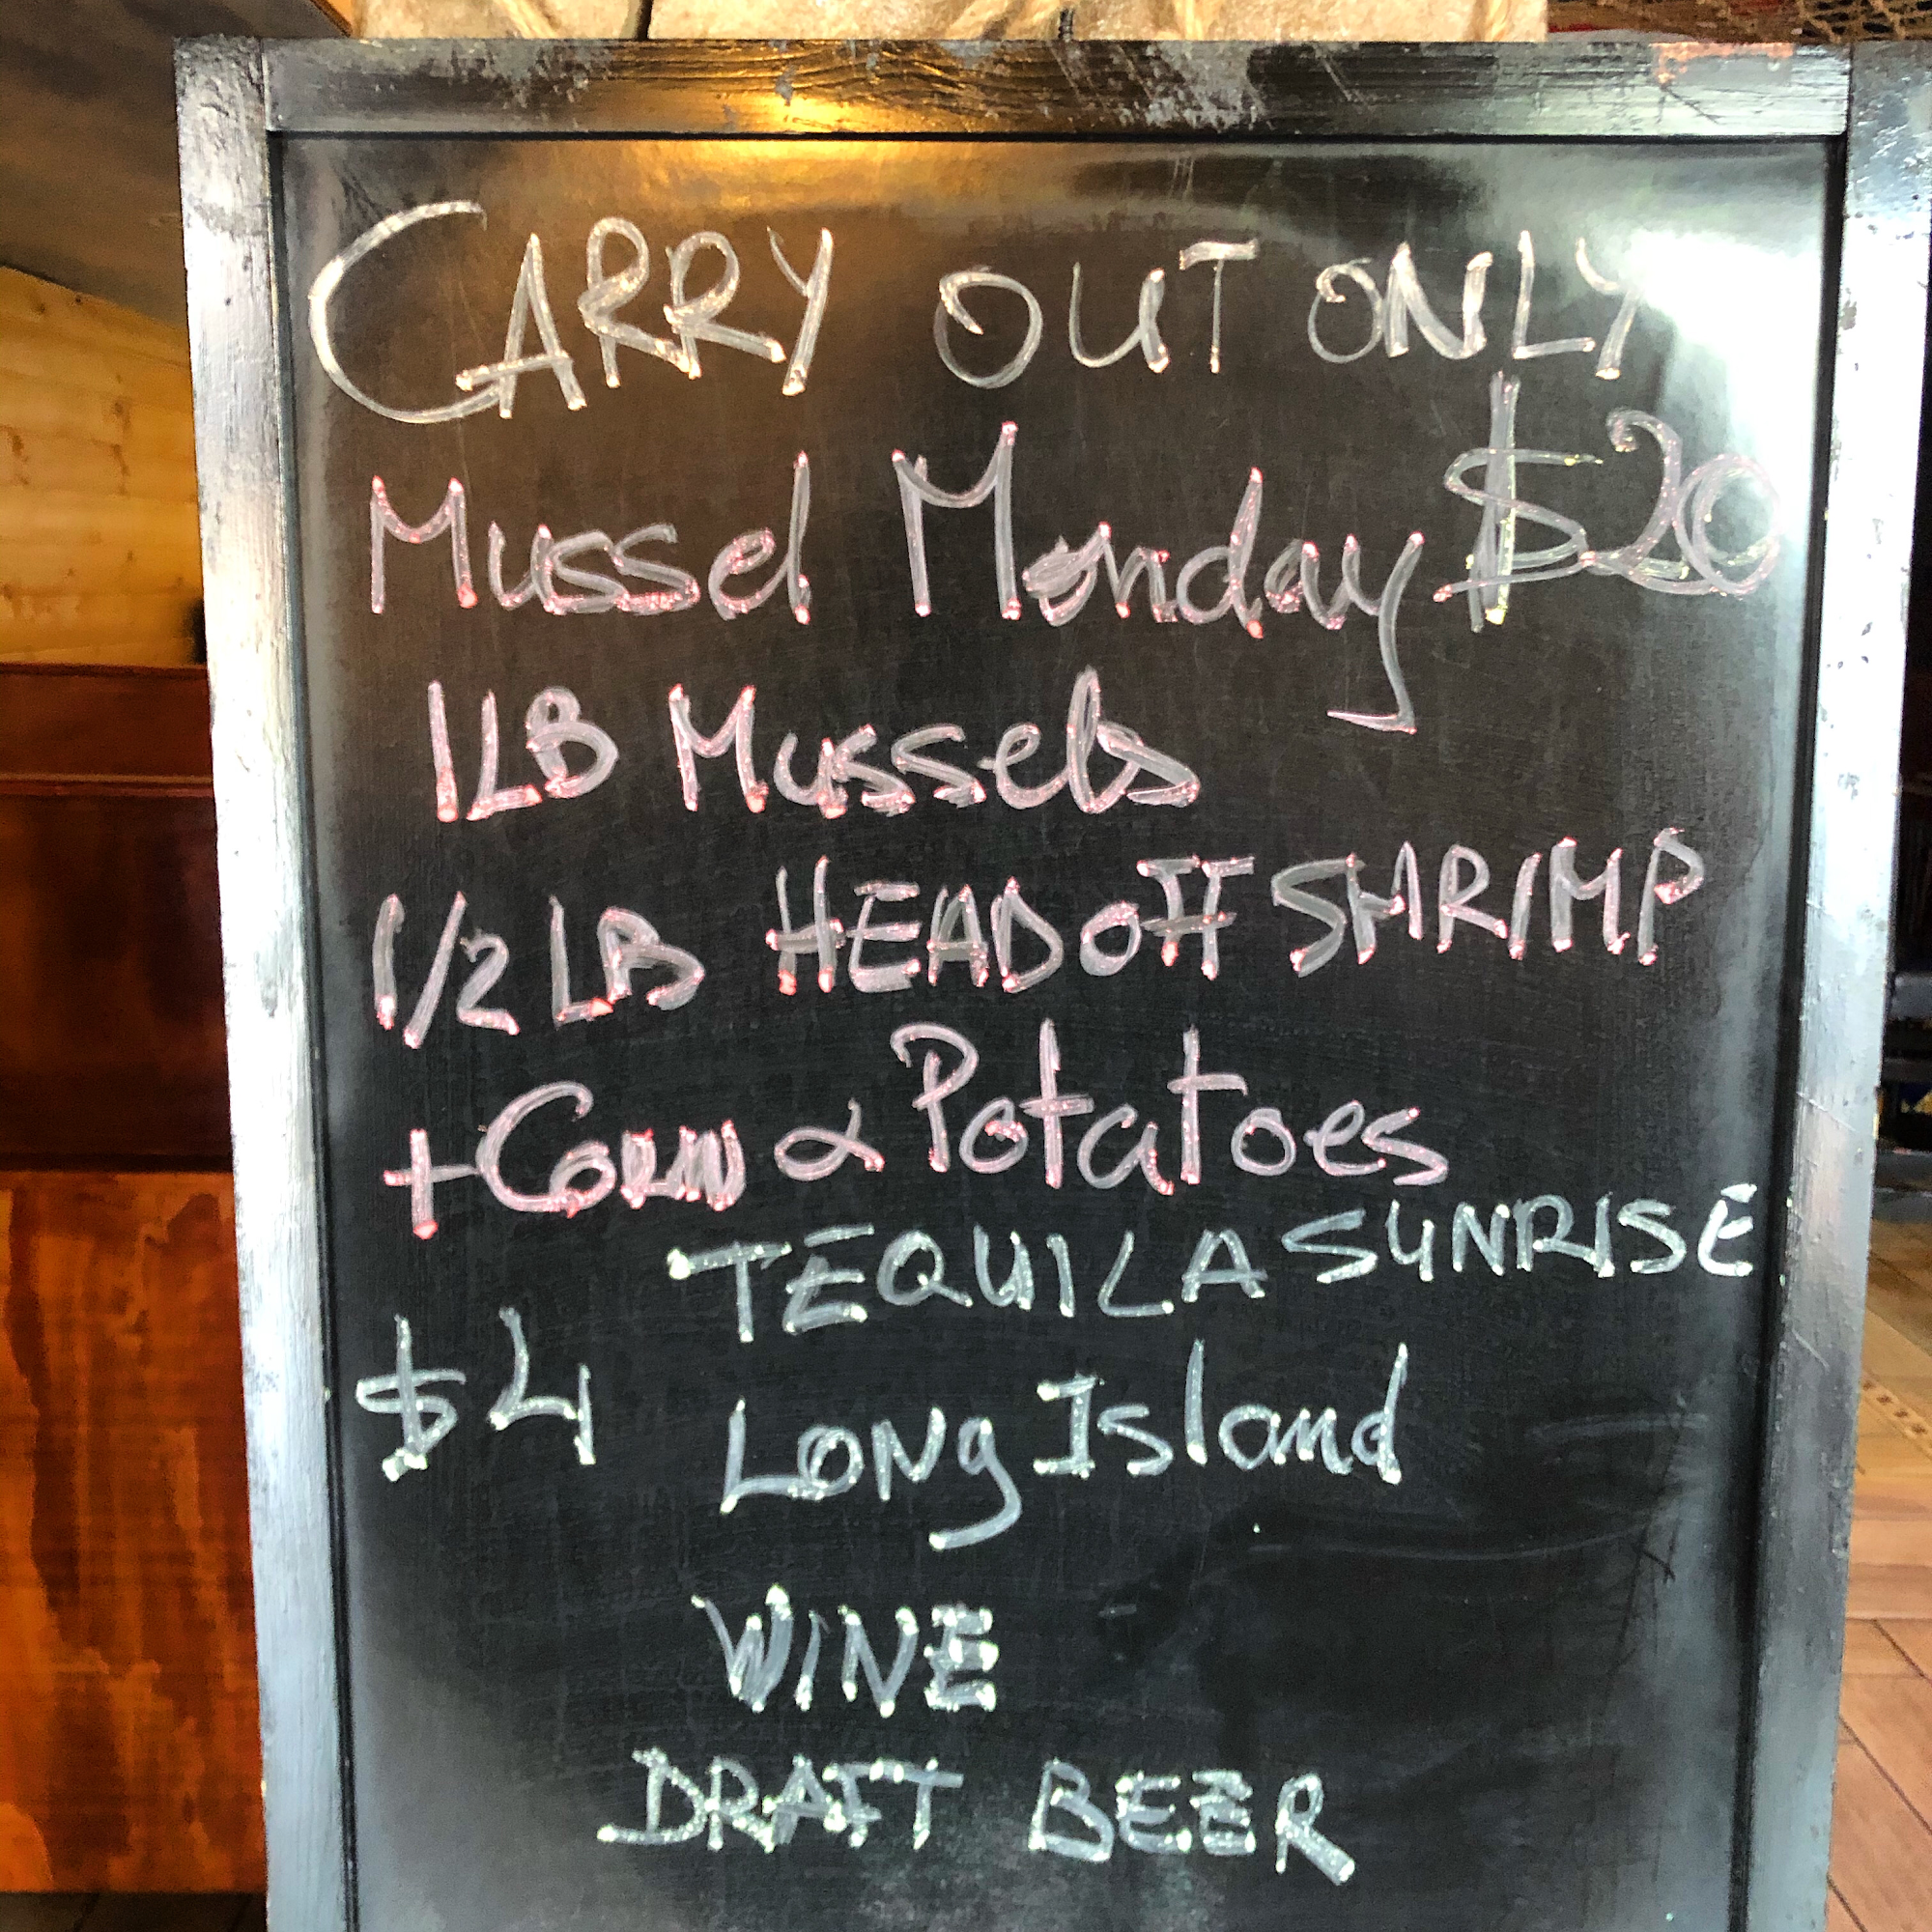 CARRY OUT ONLY
Mussel Monday $20
1LB Mussels
1/2 LB HEAD OFF SHRIMP
+ CORN & Potatoes
TEQUILA SUNRISE
$4 LONg Island
WINE
DRAFT BEER